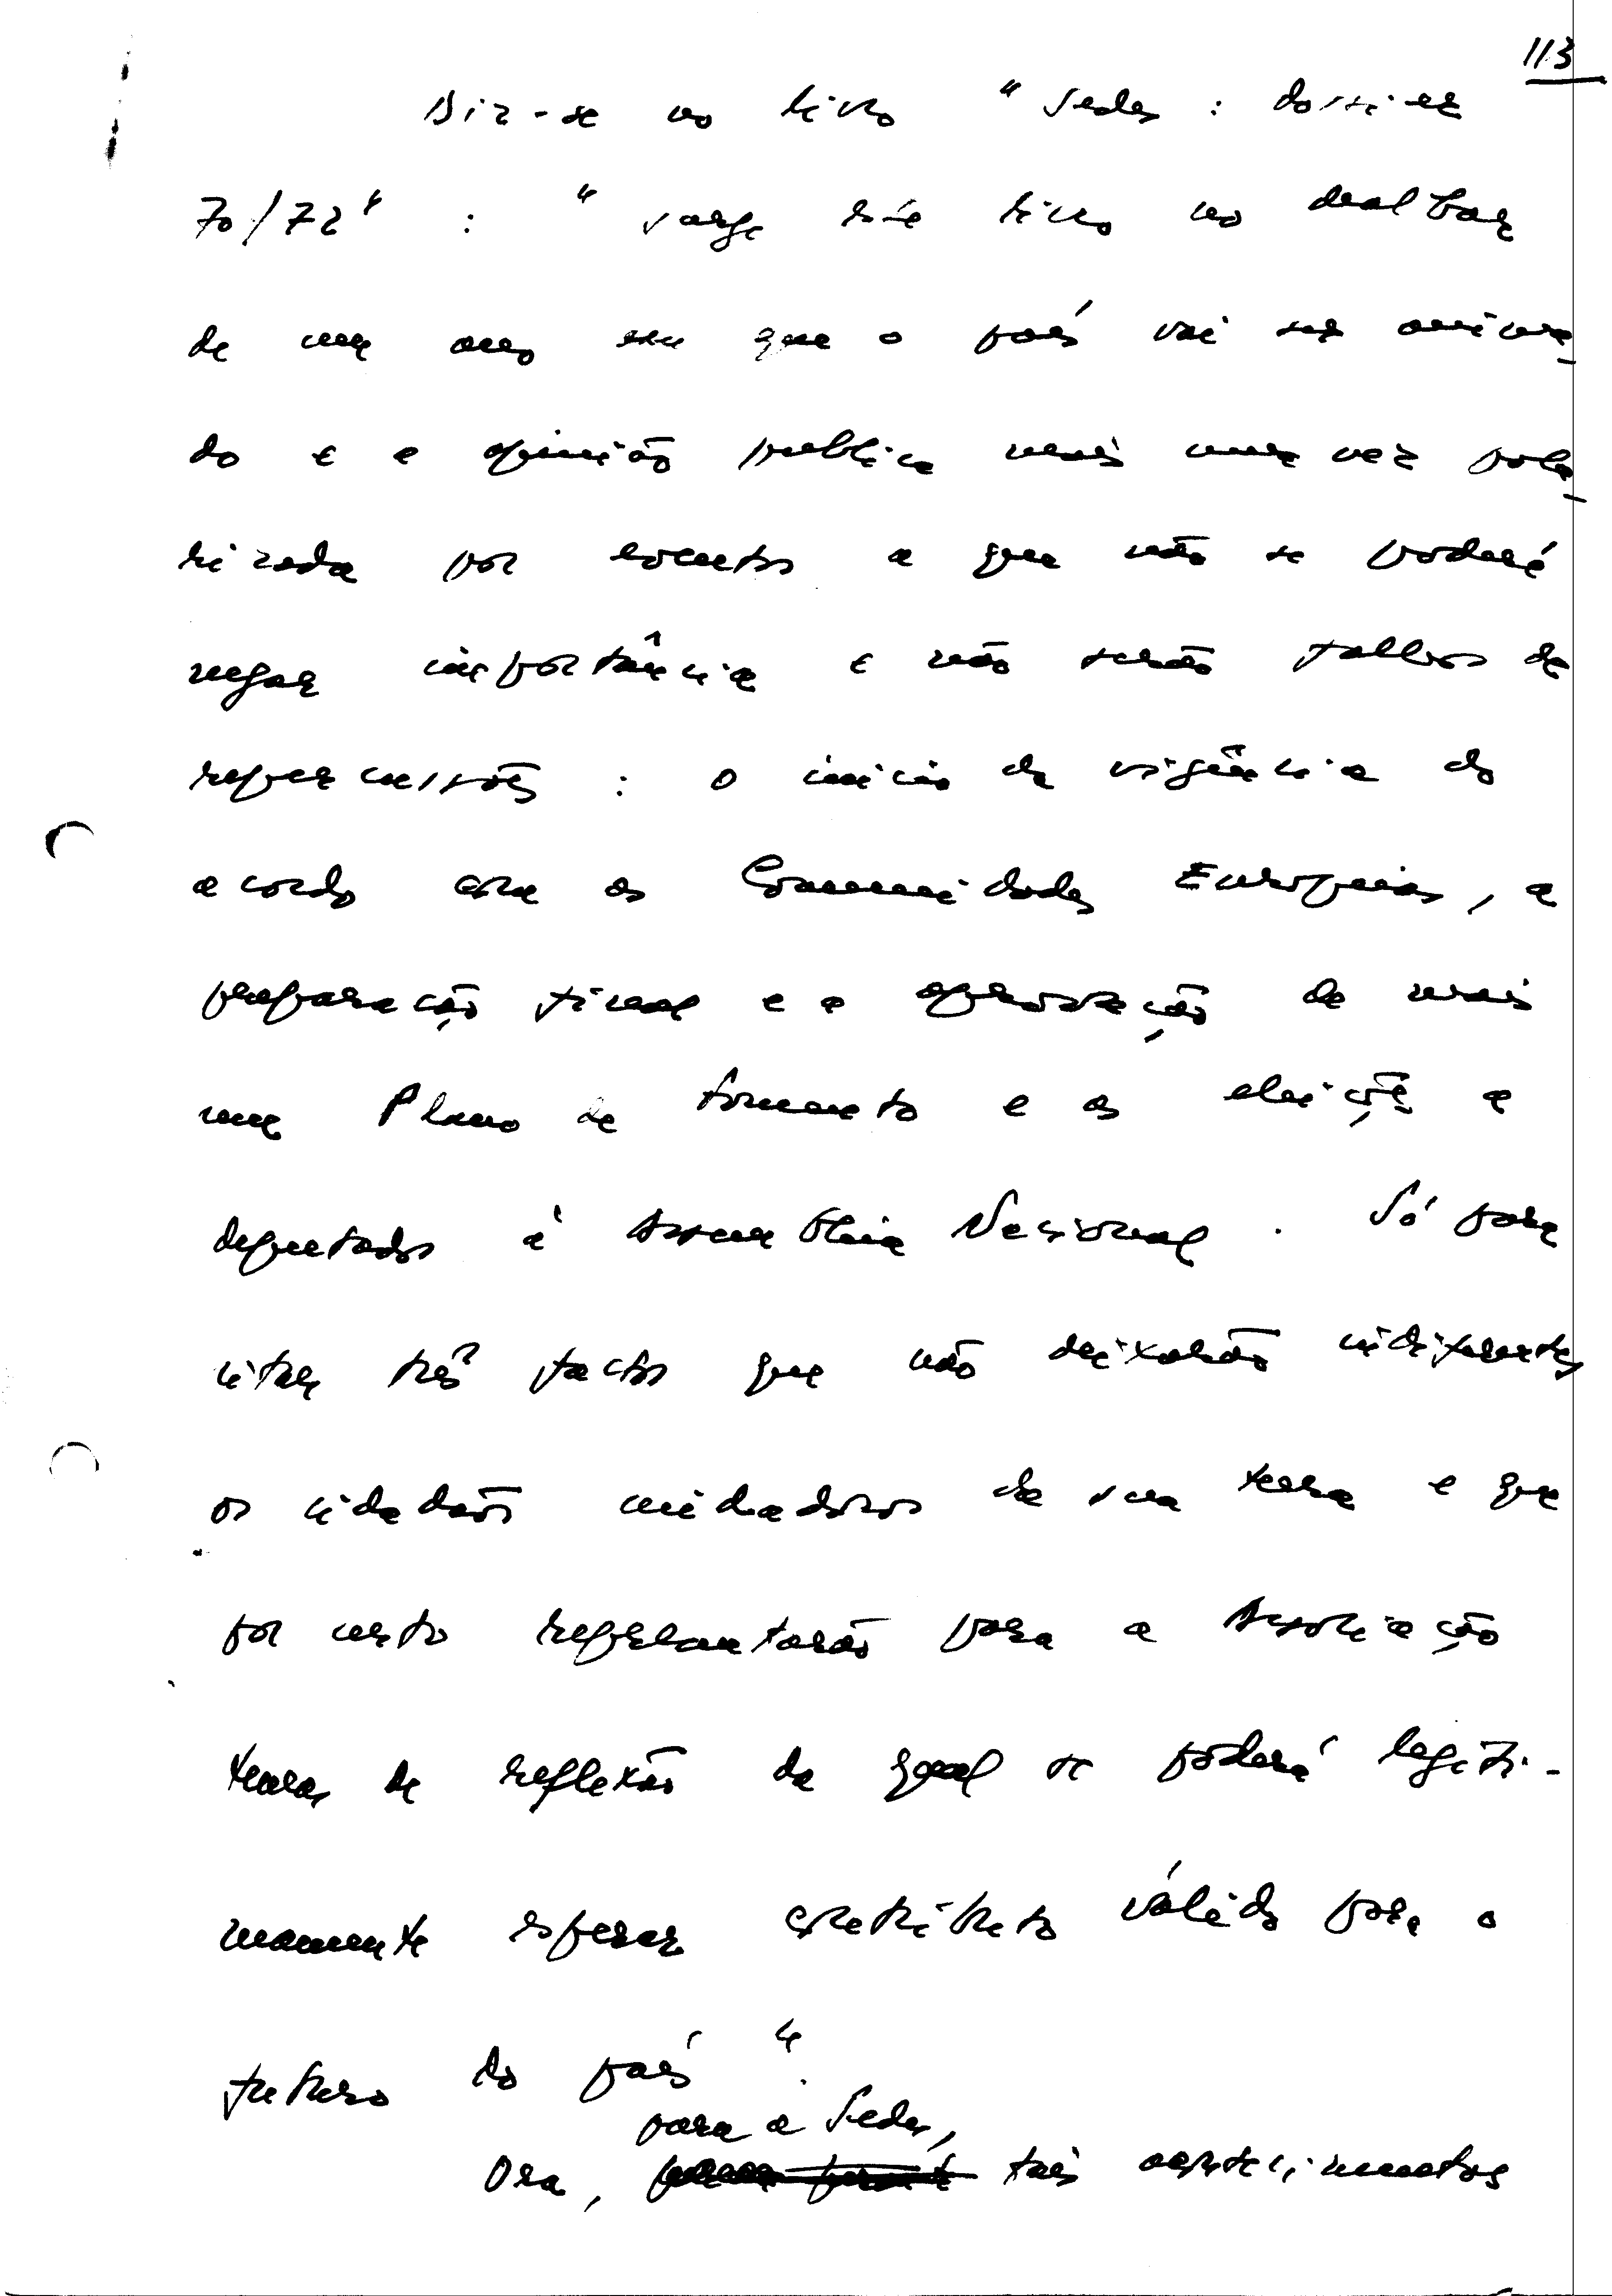 113
Diz-se no livro "Sedes : dossier
70/72" : "surge este livro no dealbar
de um ano em que o país vai ser anima-
do e a opinião publica mais uma vez pola-
rizada por eventos a que não se poderá
negar importância e não serão falhos de
repercussões : o início da vigência do
acordo com as Comunidades Europeias, a
preparação final e a aprovação de mais
um Plano de Fomento e as eleições a
deputados à Assembleia Nacional . Só para
citar três factos que não deixarão indiferentes
os cidadãos da sua terra e que
por certo representarão para a Associação
temas de reflexão da qual se poderá legiti-
mamente esperar contributo válido para o
futuro do país ".
para a Sedes,
Ora, tais acontecimentos